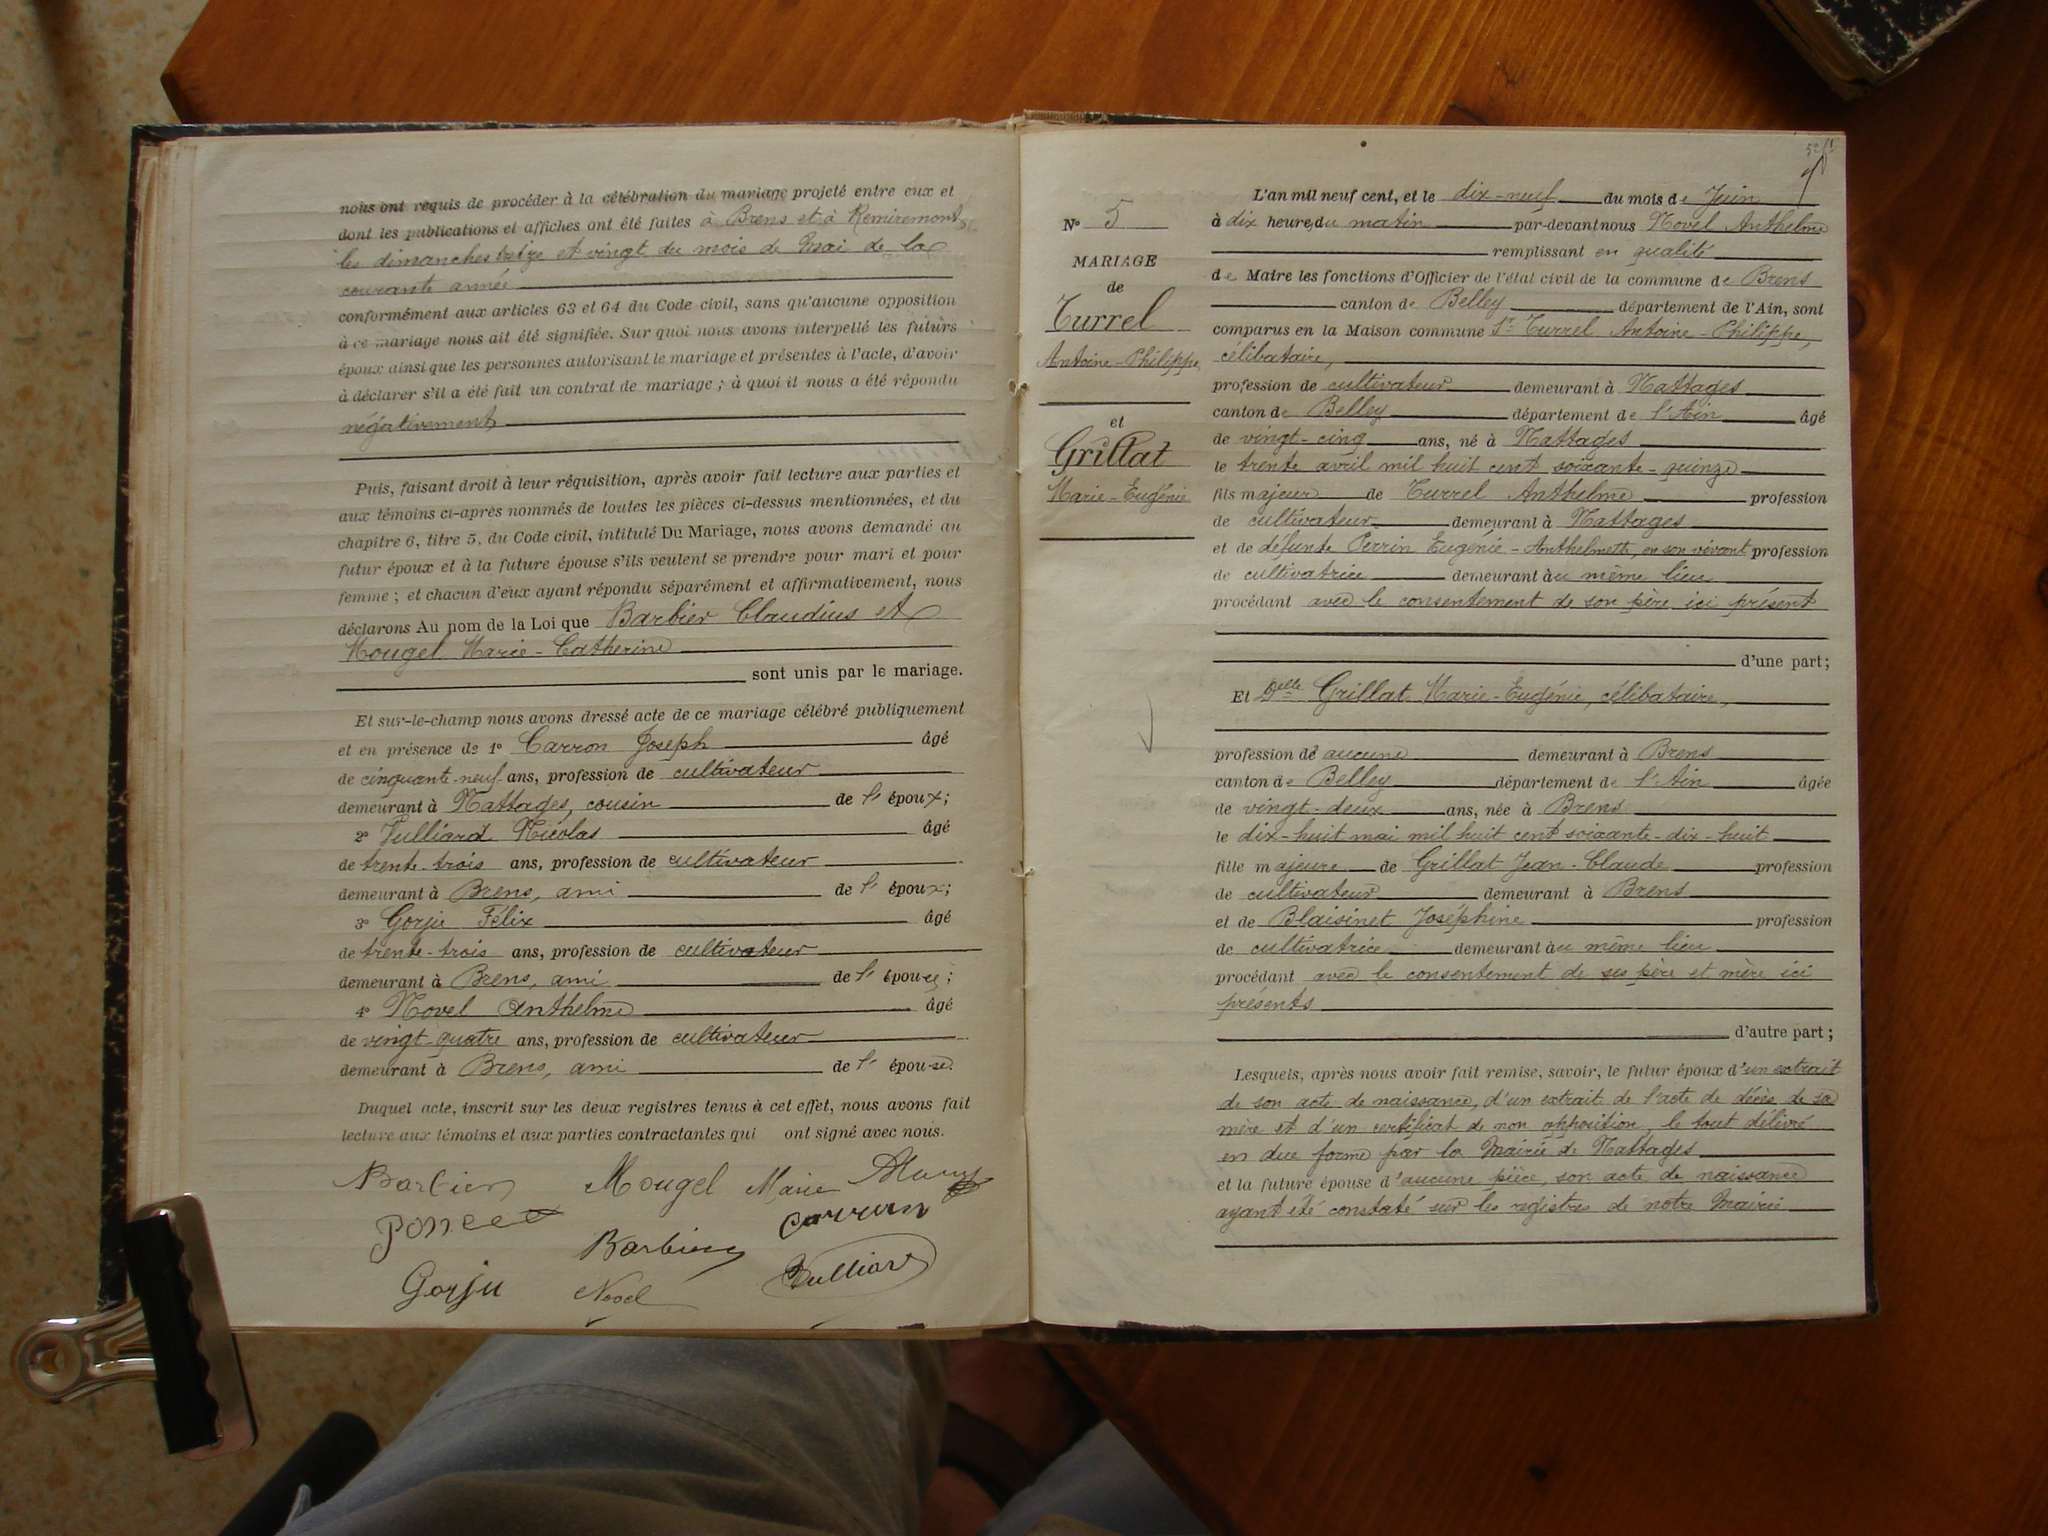 nous ont requis de procéder à la célébration du mariage projeté entre eux et
dont les publications et affiches ont été faites à Brens et à Remiremont
les dimanches treize et vingt du mois de Mai de la
courante année
conformément aux articles 63 et 64 du Code civil, sans qu'aucune opposition
à ce mariage nous ait été signifiée. Sur quoi nous avons interpellé les futurs
époux ainsi que les personnes autorisant le mariage et présentes à l'acte, d'avoir
à déclarer s'il a été fait un contrat de mariage ; à quoi il nous a été répondu
négativement
Puis, faisant droit à leur réquisition, après avoir fait lecture aux parties et
aux témoins ci-après nommés de toutes les pièces ci-dessus mentionnées, et du
chapitre 6, titre 5, du Code civil, intitulé Du Mariage, nous avons demandé au
futur époux et à la future épouse s'ils veulent se prendre pour mari et pour
femme ; et chacun d'eux ayant répondu séparément et affirmativement, nous
déclarons Au nom de la Loi que Barbier Claudius et
Mougel Marie-Catherine
sont unis par le mariage.
Et sur-le-champ nous avons dressé acte de ce mariage célébré publiquement
et en présence de 1° Carron Joseph âgé
de cinquante-neuf ans, profession de cultivateur
demeurant à Nattages, cousin de l' époux;
2° Vulliard Nicolas âgé
de trente-trois ans, profession de cultivateur
demeurant à Brens, ami de l' époux;
3° Gorju Félix âgé
de trente-trois ans, profession de cultivateur
demeurant à Brens, ami de l' épouse;
4° Novel Anthelme âgé
de vingt-quatre ans, profession de cultivateur
demeurant à Brens, ami de l' épouse.
Duquel acte, inscrit sur les deux registres tenus à cet effet, nous avons fait
lecture aux témoins et aux parties contractantes qui ont signé avec nous.
Barbier Mougel Marie
Poncet Carron
Barbier
Gorju Novel Vulliard
N° 5
MARIAGE
de
Turrel
Antoine-Philippe
et
Grillat
Marie-Eugénie
L'an mil neuf cent, et le dix-neuf du mois de Juin
à dix heures du matin par-devant nous Novel Anthelme
remplissant en qualité
de Maire les fonctions d'Officier de l'état civil de la commune de Brens
canton de Belley département de l'Ain, sont
comparus en la Maison commune Sr Turrel Antoine-Philippe,
célibataire,
profession de cultivateur demeurant à Nattages
canton de Belley département de l'Ain âgé
de vingt-cinq ans, né à Nattages
le trente avril mil huit cent soixante-quinze
fils majeur de Turrel Anthelme profession
de cultivateur demeurant à Nattages
et de défunte Perrin Eugénie-Anthelmette, en son vivant profession
de cultivatrice demeurant au même lieu
procédant avec le consentement de son père ici présent
d'une part;
Et Delle Grillat Marie-Eugénie, célibataire,
profession de aucune demeurant à Brens
canton de Belley département de l'Ain âgée
de vingt-deux ans, née à Brens
le dix-huit mai mil huit cent soixante-dix-huit
fille majeure de Grillat Jean-Claude profession
de cultivateur demeurant à Brens
et de Blaisinet Joséphine profession
de cultivatrice demeurant au même lieu
procédant avec le consentement de ses père et mère ici
présents
d'autre part;
Lesquels, après nous avoir fait remise, savoir, le futur époux d'un extrait
de son acte de naissance, d'un extrait de l'acte de décès de sa
mère et d'un certificat de non opposition, le tout délivré
en due forme par la Mairie de Nattages
et la future épouse d'aucune pièce, son acte de naissance
ayant été constaté sur les registres de notre Mairie